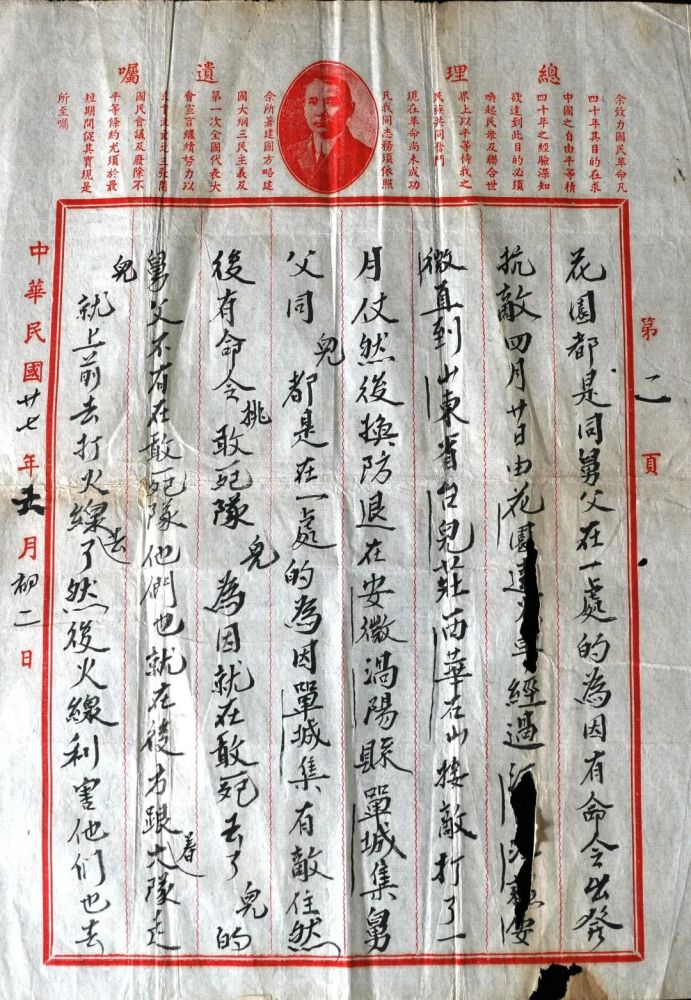 總理遺囑
余致力國民革命凡
四十年其目的在求
中國之自由平等積
四十年之經驗深知
欲達到此目的必須
喚起民眾及聯合世
界上以平等待我之
民族共同奮鬥
現在革命尚未成功
凡我同志務須依照
余所著建國方略建
國大綱三民主義及
第一次全國代表大
會宣言繼續努力以
國民會議及廢除不
平等條約尤須於最
短期間促其實現是
所至囑
第二頁
花園都是同舅父在一處的為因有命令出發
抗敵四月廿日由花園達 車經過 安
微直到山東省台兒莊西華石山接敵打了一
月仗然後換防退在安微渦陽縣單城集舅
父同兒都是在一處的為因單城集有敵住然
後有命令挑敢死隊兒為因就在敢死去了兒的
舅父不有在敢死隊他們也就在後方跟着大隊走
兒就上前去打火線去了然後火線利害他们也去
中華民國廿七年五月初二日